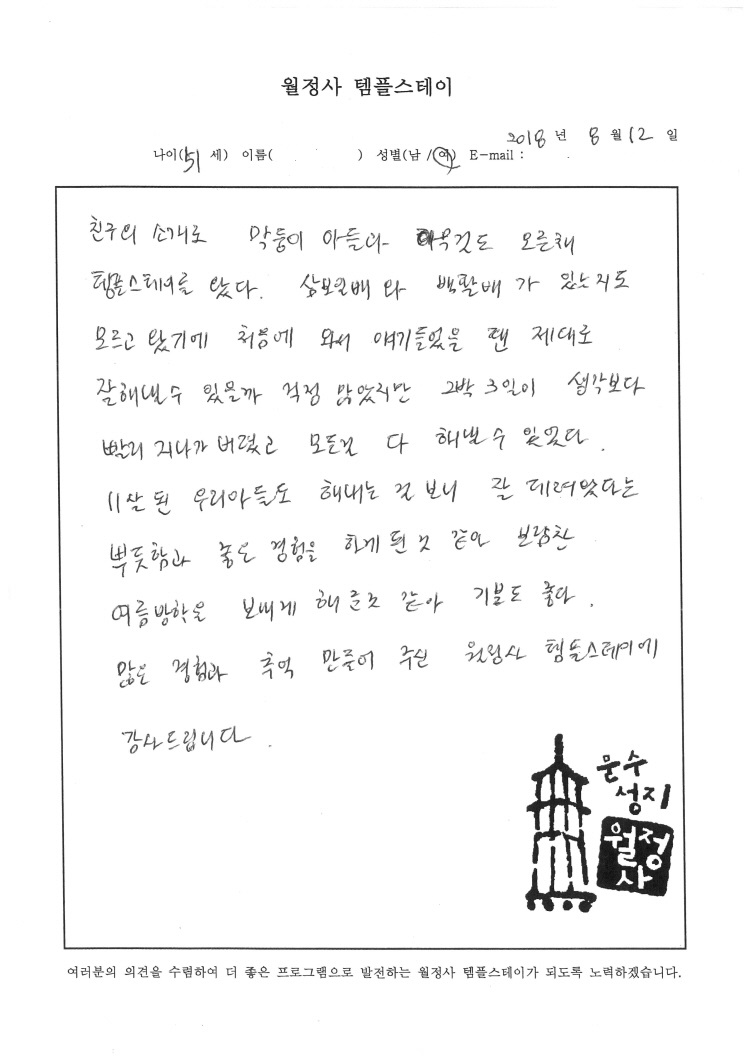 월정사 템플스테이
2018 년 8 월 12 일
나이(51 세) 이름( ) 성별(남 / 여) E-mail :
친구의 소개로 막둥이 아들과 아무것도 모른채
템플스테이를 왔다. 삼보일배 와 백팔배 가 있는지도
모르고 왔기에 처음에 와서 얘기들었을 땐 제대로
잘해낼수 있을까 걱정 많았지만 2박 3일이 생각보다
빨리 지나가 버렸고 모든걸 다 해낼 수 있었다.
11살 된 우리아들도 해내는 걸 보니 잘 데려왔다는
뿌듯함과 좋은 경험을 하게 된것 같아 보람찬
여름방학을 보내게 해 준것 같아 기분도 좋다.
많은 경험과 추억 만들어 주신 월정사 템플스테이에
감사드립니다.
문수
성지
월정
사
여러분의 의견을 수렴하여 더 좋은 프로그램으로 발전하는 월정사 템플스테이가 되도록 노력하겠습니다.